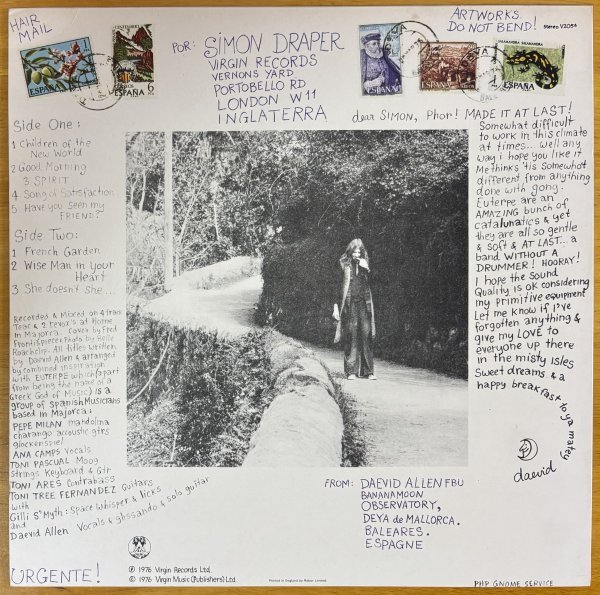 HAIR
MAIL
ESPAÑA
ESPAÑA
6
POR:
SIMON DRAPER
VIRGIN RECORDS
VERNONS YARD
PORTOBELLO RD
LONDON W11
INGLATERRA
ARTWORKS
DO NOT BEND!
Stereo V2054
DEYA
ESPAÑA
ESPAÑA
SALAMANDRA SALAMANDRA
ESPAÑA
dear SIMON, Phor! MADE IT AT LAST!
Somewhat difficult
to work in this climate
at times... well any
way i hope you like it
Methinks 'tis somewhat
different from anything
done with gong.
Euterpe are an
AMAZING bunch of
catalunatics & yet
they are all so gentle
& soft & AT LAST.. a
band WITHOUT A
DRUMMER! HOORAY!
I hope the sound
Quality is OK considering
my primitive equipment
Let me know if I've
forgotten anything &
give my LOVE to
everyone up there
in the misty isles
Sweet dreams & a
happy breakfast to ya matey
daevid
Side One:
1 Children of the
New World
2 Good Morning
3 SPIRIT
4 Song of Satisfaction
5 Have you seen my
FRIEND?
Side Two:
1 French Garden
2 Wise Man in your
Heart
3 She doesn't she...
Recorded & Mixed on 4 track
Teac & 2 revox's at Home
in Majorca. Cover by Fred
Frontispiece & Photo by Belle
Roachclip. All titles written
by Daevid Allen & arranged
by combined inspiration
with EUTERPE which (apart
from being the name of a
Greek God of MUSIC) is a
group of Spanish Musicians
based in Majorca:
PEPE MILAN mandolina
charango acoustic gtrs
glockenspiel
ANA CAMPS Vocals
TONI PASCUAL Moog
Strings Keyboard & Gtr
TONI ARES Contrabass
TONI TREE FERNANDEZ Guitars
with
Gilli S"Myth: Space Whisper & licks
and
Daevid Allen Vocals & glissando & solo guitar
FROM: DAEVID ALLEN FBU
BANANAMOON
OBSERVATORY,
DEYA de MALLORCA.
BALEARES.
ESPAGNE
URGENTE!
℗ 1976 Virgin Records Ltd.
© 1976 Virgin Music (Publishers) Ltd.
Printed in England by Robor Limited.
PHP GNOME SERVICE